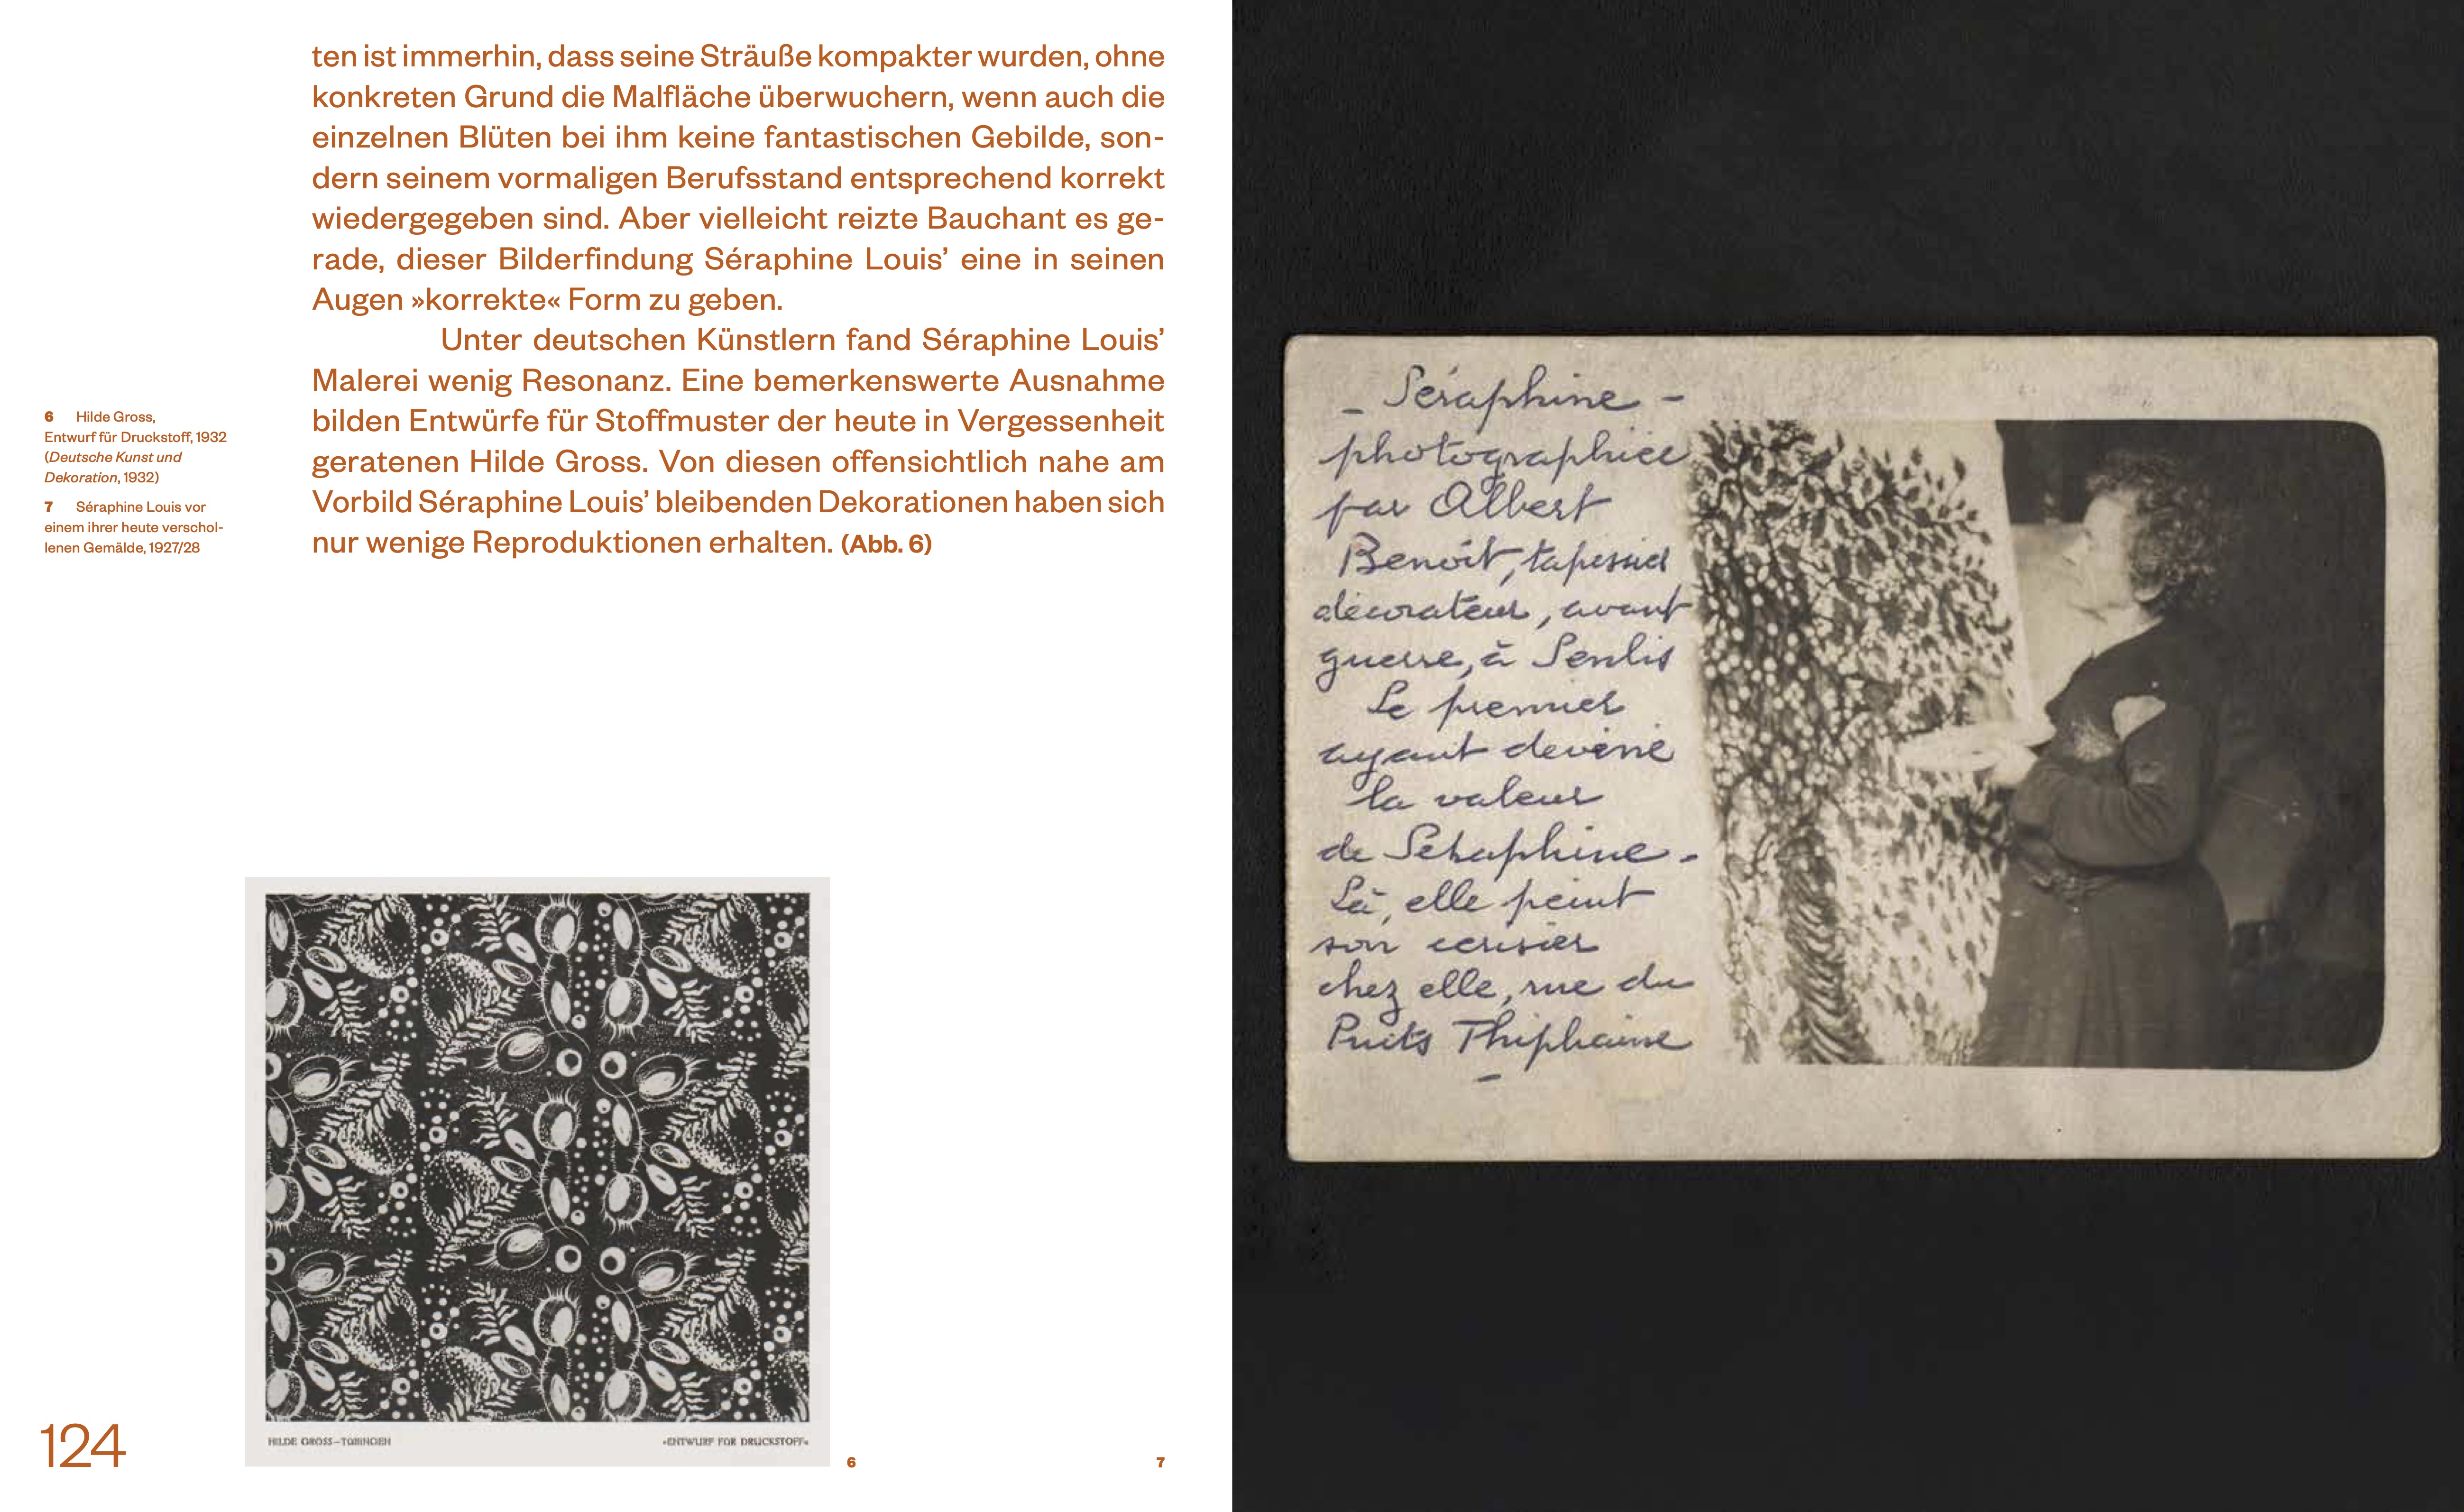 ten ist immerhin, dass seine Sträuße kompakter wurden, ohne
konkreten Grund die Malfläche überwuchern, wenn auch die
einzelnen Blüten bei ihm keine fantastischen Gebilde, son-
dern seinem vormaligen Berufsstand entsprechend korrekt
wiedergegeben sind. Aber vielleicht reizte Bauchant es ge-
rade, dieser Bilderfindung Séraphine Louis’ eine in seinen
Augen »korrekte« Form zu geben.
Unter deutschen Künstlern fand Séraphine Louis’
Malerei wenig Resonanz. Eine bemerkenswerte Ausnahme
bilden Entwürfe für Stoffmuster der heute in Vergessenheit
geratenen Hilde Gross. Von diesen offensichtlich nahe am
Vorbild Séraphine Louis’ bleibenden Dekorationen haben sich
nur wenige Reproduktionen erhalten. (Abb. 6)
6 Hilde Gross,
Entwurf für Druckstoff, 1932
(Deutsche Kunst und
Dekoration, 1932)
7 Séraphine Louis vor
einem ihrer heute verschol-
lenen Gemälde, 1927/28
HILDE GROSS–
»ENTWURF FÜR DRUCKSTOFF«
6
7
124
– Séraphine –
photographiée
par Albert
Benoît, tapissier
décorateur, avant
guerre, à Senlis
Le premier
ayant deviné
la valeur
de Séraphine.
Là, elle peint
son cerisier
chez elle, rue du
Puits Thiphaine